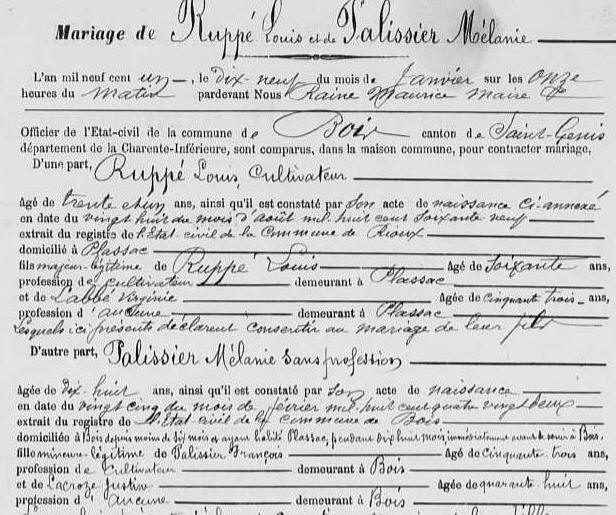 Mariage de Ruppé Louis et de Palissier Mélanie
L'an mil neuf cent un, le dix-neuf du mois de Janvier sur les onze
heures du matin pardevant Nous Raine Maurice Maire
Officier de l'Etat-civil de la commune de Bois canton de Saint-Genis
département de la Charente-Inférieure, sont comparus, dans la maison commune, pour contracter mariage,
D'une part, Ruppé Louis, Cultivateur
Agé de trente et un ans, ainsi qu'il est constaté par son acte de naissance ci-annexé
en date du vingt huit du mois d'août mil huit cent soixante neuf
extrait du registre de l'Etat-civil de la Commune de Rioux
domicilié à Plassac
fils majeur légitime de Ruppé Louis Agé de soixante ans,
profession de cultivateur demeurant à Plassac
et de Labbé Virginie Agée de cinquante trois ans,
profession d'aucune demeurant à Plassac
Lesquels ici présents déclarent consentir au mariage de leur fils
D'autre part, Palissier Mélanie sans profession
Agée de dix-huit ans, ainsi qu'il est constaté par son acte de naissance
en date du vingt cinq du mois de février mil huit cent quatre vingt deux
extrait du registre de l'Etat civil de la Commune de Bois
domiciliée à Bois depuis moins de six mois et ayant habité Plassac, pendant dix huit mois, immédiatement avant de venir à Bois.
fille mineure légitime de Palissier François Agé de cinquante trois ans
profession de Cultivateur demeurant à Bois
et de Lacroze Justine Agée de quarante huit ans,
profession d'aucune demeurant à Bois